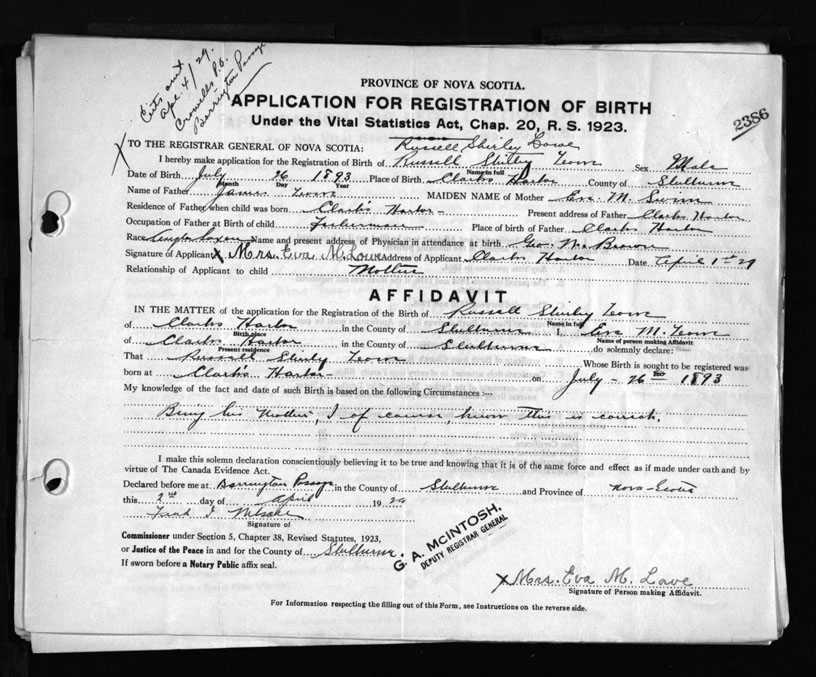 Certs out
Apr 4/29.
Crowells P.O.
Barrington Passage
PROVINCE OF NOVA SCOTIA.
APPLICATION FOR REGISTRATION OF BIRTH
Under the Vital Statistics Act, Chap. 20, R. S. 1923.
2386
TO THE REGISTRAR GENERAL OF NOVA SCOTIA: Russell Shirley Lowe
I hereby make application for the Registration of Birth of Russell Shirley Lowe Sex Male
Name in full
Date of Birth July 26 1893 Place of Birth Clarks Harbor County of Shelburne
Month Day Year
Name of Father James Lowe MAIDEN NAME of Mother Eva M. Swim
Residence of Father when child was born Clark's Harbor Present address of Father Clarks Harbor
Occupation of Father at Birth of child Fisherman Place of birth of Father Clarks Harbor
Race Name and present address of Physician in attendance at birth Geo. M. Brown
Signature of Applicant X Mrs. Eva M. Lowe Address of Applicant Clarks Harbor Date April 1st 29
Relationship of Applicant to child Mother
AFFIDAVIT
IN THE MATTER of the Application for Registration of the Birth of Russell Shirley Lowe
Name in full
of Clarks Harbor in the County of Shelburne I, Eva M. Lowe
Birth place Name of person making Affidavit
of Clarks Harbor in the County of Shelburne do solemnly declare:
Present residence
That Russell Shirly Lowe Whose Birth is sought to be registered was
born at Clark's Harbor on July - 26 1893
My knowledge of the fact and date of such Birth is based on the following Circumstances :—
Being his Mother, I of course, know this is correct.
I make this solemn declaration conscientiously believing it to be true and knowing that it is of the same force and effect as if made under oath and by
virtue of The Canada Evidence Act.
Declared before me at Barrington Passage in the County of Shelburne and Province of Nova-Scotia
this 2nd day of April 19 29
Signature of
Commissioner under Section 5, Chapter 38, Revised Statutes, 1923,
or Justice of the Peace in and for the County of Shelburne.
If sworn before a Notary Public affix seal.
G. A. McINTOSH,
DEPUTY REGISTRAR GENERAL
X Mrs. Eva M. Lowe
Signature of Person making Affidavit.
For Information respecting the filling out of this Form, see Instructions on the reverse side.